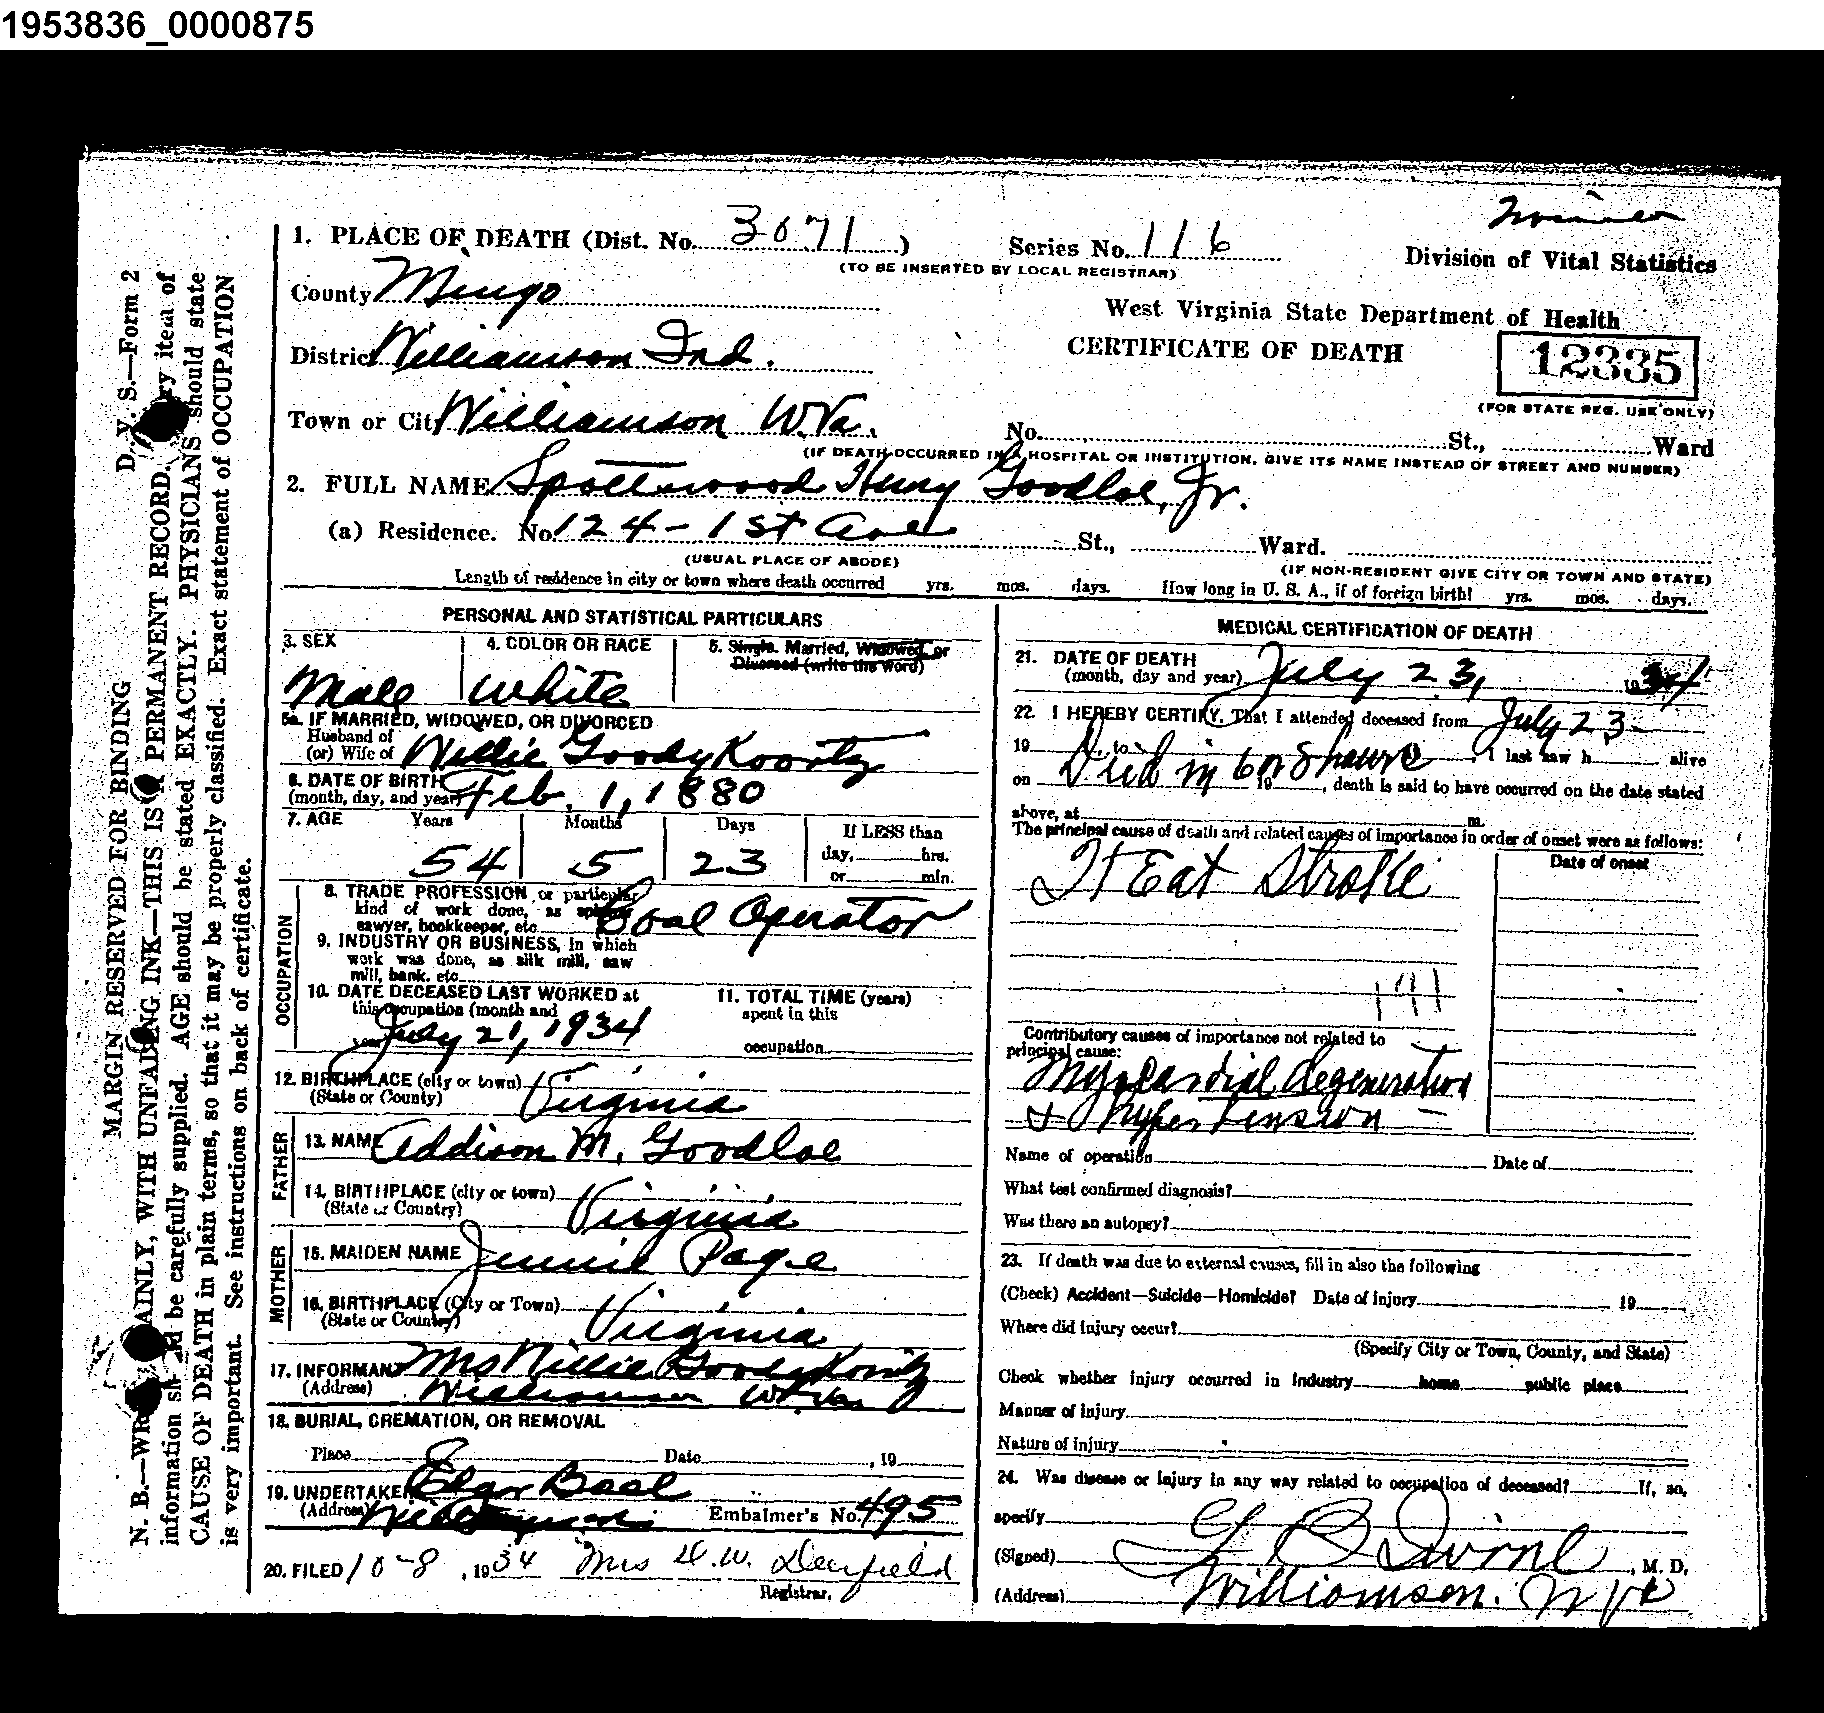 1953836_0000875
D. V. S.—Form 2
MARGIN RESERVED FOR BINDING
N. B.—WR AINLY, WITH UNFADING INK—THIS IS A PERMANENT RECORD. ry item of
information sh ld be carefully supplied. AGE should be stated EXACTLY. PHYSICIANS should state
CAUSE OF DEATH in plain terms, so that it may be properly classified. Exact statement of OCCUPATION
is very important. See instructions on back of certificate.
1. PLACE OF DEATH (Dist. No. 3071) Series No. 116
(TO BE INSERTED BY LOCAL REGISTRAR)
Division of Vital Statistics
County Mingo
West Virginia State Department of Health
District Williamson Ind.
CERTIFICATE OF DEATH
12335
(FOR STATE REG. USE ONLY)
Town or City Williamson W.Va. No. St., Ward
(IF DEATH OCCURRED IN A HOSPITAL OR INSTITUTION, GIVE ITS NAME INSTEAD OF STREET AND NUMBER)
2. FULL NAME Spottswood Henry Goodloe, Jr.
(a) Residence. No. 124 - 1st Ave St., Ward.
(USUAL PLACE OF ABODE) (IF NON-RESIDENT GIVE CITY OR TOWN AND STATE)
Length of residence in city or town where death occurred yrs. mos. days. How long in U. S. A., if of foreign birth? yrs. mos. days.
PERSONAL AND STATISTICAL PARTICULARS
3. SEX 4. COLOR OR RACE 5. Single, Married, Widowed, or
Divorced (write the word)
Male White
5a. IF MARRIED, WIDOWED, OR DIVORCED
Husband of
(or) Wife of Nillie Goodykoontz
6. DATE OF BIRTH
(month, day, and year) Feb. 1, 1880
7. AGE Years Months Days If LESS than
54 5 23 day, hrs.
or min.
OCCUPATION
8. TRADE PROFESSION or particular
kind of work done, as spinner
sawyer, bookkeeper, etc. Coal Operator
9. INDUSTRY OR BUSINESS, in which
work was done, as silk mill, saw
mill, bank, etc.
10. DATE DECEASED LAST WORKED at 11. TOTAL TIME (years)
this occupation (month and spent in this
year) July 21, 1934 occupation
12. BIRTHPLACE (city or town)
(State or County) Virginia
FATHER
13. NAME Addison M. Goodloe
14. BIRTHPLACE (city or town)
(State or Country) Virginia
MOTHER
15. MAIDEN NAME Jennie Page
16. BIRTHPLACE (City or Town)
(State or Country) Virginia
17. INFORMANT Mrs Nillie Goodykoontz
(Address) Williamson W.Va.
18. BURIAL, CREMATION, OR REMOVAL
Place Date , 19
19. UNDERTAKER Edgar Baal
(Address) Williamson Embalmer's No. 495
20. FILED 10-8, 1934 Mrs H.W. Deerfield
Registrar.
MEDICAL CERTIFICATION OF DEATH
21. DATE OF DEATH
(month, day and year) July 23, 1934
22. I HEREBY CERTIFY, That I attended deceased from July 23-
19 to I last saw h alive
on Died in 6 or 8 hours 19 , death is said to have occurred on the date stated
above, at m.
The principal cause of death and related causes of importance in order of onset were as follows:
Date of onset
HEat Stroke
191
Contributory causes of importance not related to
principal cause:
Myocardial degeneration
+ Hypertension -
Name of operation Date of
What test confirmed diagnosis?
Was there an autopsy?
23. If death was due to external causes, fill in also the following
(Check) Accident—Suicide—Homicide? Date of injury 19
Where did injury occur?
(Specify City or Town, County, and State)
Check whether injury occurred in industry home public place
Manner of injury
Nature of injury
24. Was disease or injury in any way related to occupation of deceased? If, so,
specify
(Signed) , M. D.
(Address) Williamson. W Va